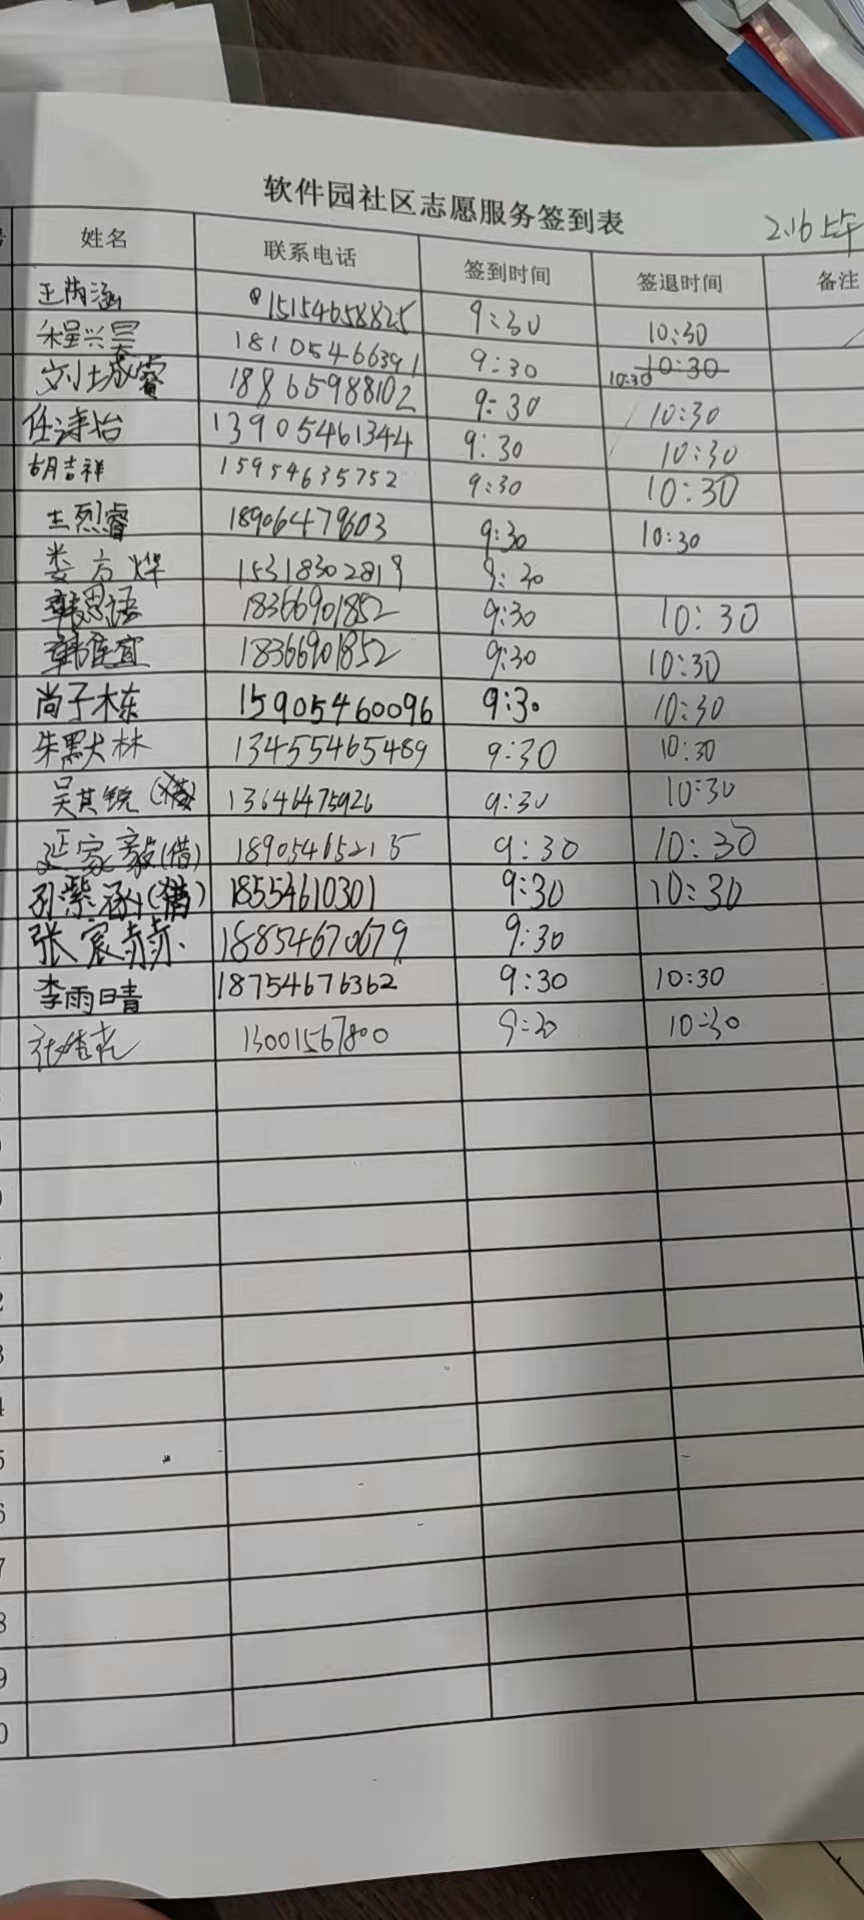 软件园社区志愿服务签到表
2.16上午
姓名 联系电话 签到时间 签退时间 备注
15154658825 9:30 10:30
程兴昊 18105466391 9:30 10:30 10:30
刘城睿 18865988102 9:30 10:30
任 怡 13905461344 9:30 10:30
胡吉祥 15954635752 9:30 10:30
王烈睿 18906479603 9:30 10:30
娄方烨 15318302819 9:30
韩思语 18366901852 9:30 10:30
韩 宜 18366901852 9:30 10:30
尚子栋 15905460096 9:30 10:30
朱默林 13455465489 9:30 10:30
吴其锐 13646475926 9:30 10:30
延家毅(借) 18905465215 9:30 10:30
孙紫涵(借) 18554610301 9:30 10:30
张宸赫 18854670679 9:30
李雨晴 18754676362 9:30 10:30
13001567800 9:30 10:30